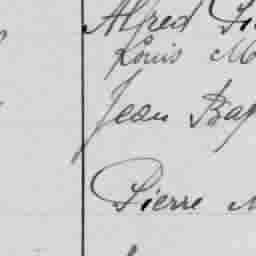 Alfred
Louis M
Jean Bap
Pierre